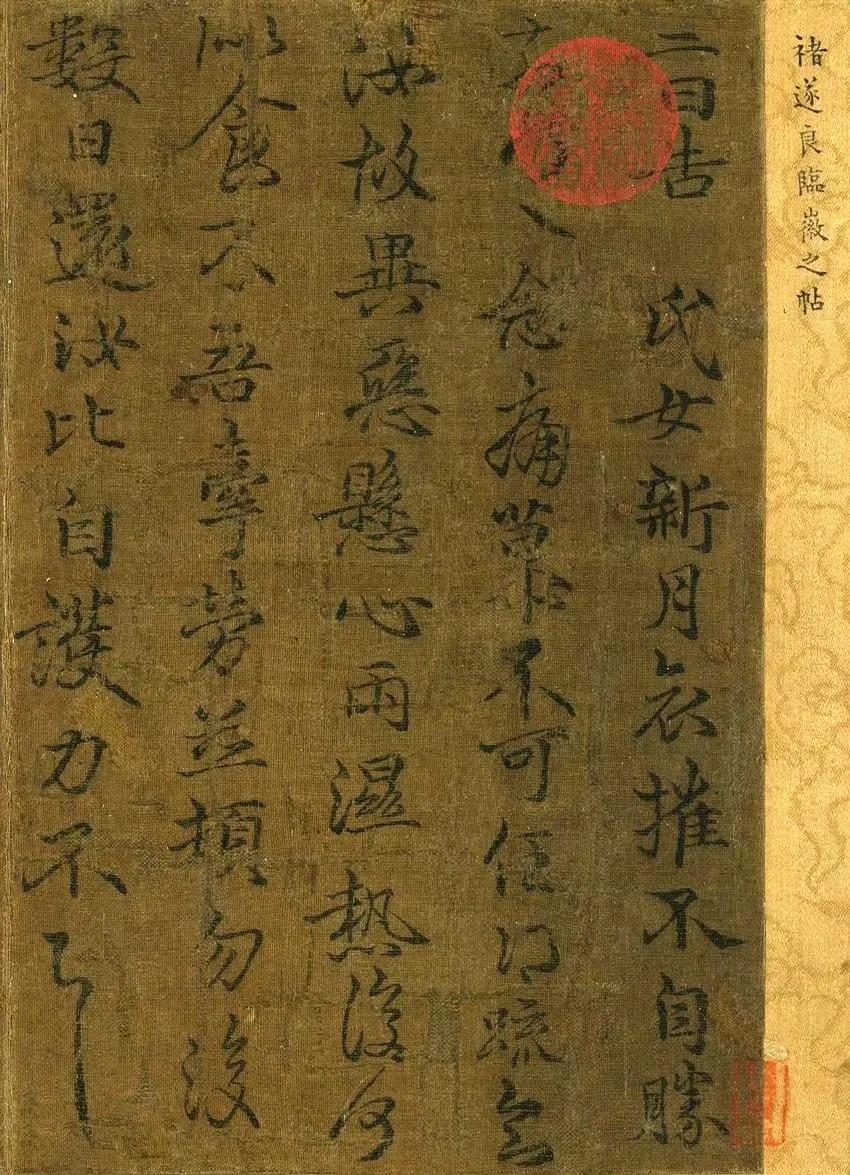 褚遂良臨徽之帖
二日告 氏女新月哀摧不自勝
念痛慕不可任得疏知
汝故異惡懸心雨濕熱復何
似食不吾牽勞並頓勿復
數日還汝比自護力不